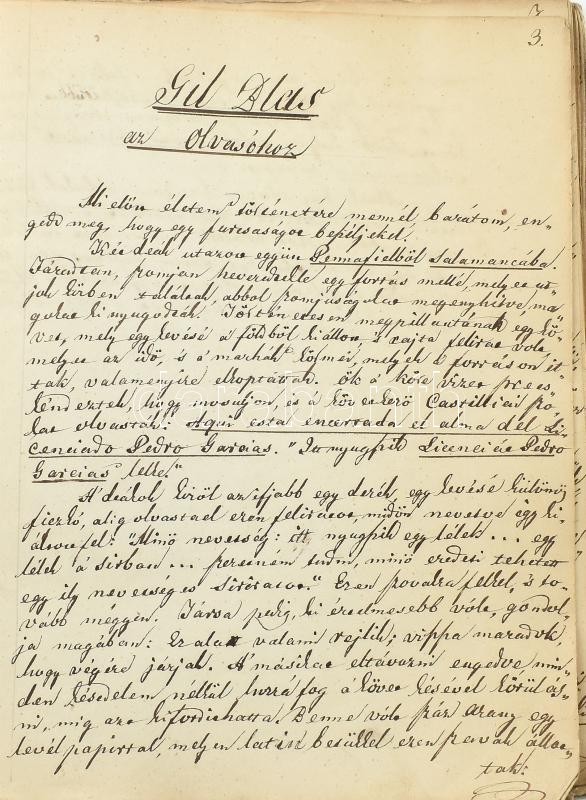 3.
Gil Blas
az Olvasóhoz
Mielőtt életem történetére mennél barátom, en-
gedd meg, hogy egy furcsaságot beszéljek el.
Két deák utazott együtt Pennafielből Salamancába.
Fáradtan, szomjan heveredtek egy forrás mellé, melyet ut-
jok közben találtak, abból szomjúságukat megenyhítve, ma-
gokat kinyugodták. Történetesen megpillantának egy kö-
vet, mely egy kevésé a földből kiállott, s rajta felirat volt
melyet az idő, s a marhák körmei, melyek a forráson it-
tak, valamenyire elkoptattak. Ők a kőre vizet frecs-
kendeztek, hogy mosuljon, és a következő Castilliai szo-
kat olvasták: Aqui esta encerrada el alma del Li-
cenciado Pedro Garcias. "Itt nyugszik Licenciát Pedro
Garcias lelke."
A deákok közöl az ifjabb egy derék, egy kevésé különös
ficzkó, alig olvasta el ezen feliratot, midőn nevetve így ki-
áltott fel: "Minő nevesség: itt nyugszik egy lélek... egy
lélek a sirban... szeretném tudni, minő eredeti tehetett
egy ily nevetséges siriratot." Ezen szavakra felkel, 's to-
vább méggyen. Társa pedig, ki értelmesebb vólt, gondol-
ja magában: Ez alatt valami rejlik; vissza maradok,
hogy végére járjak. A másikat eltávozni engedve min-
den késedelem nélkül hozzá fog a követ késével körül ás-
ni, mig azt kifordíthatta. Benne vólt száz arany egy
levél papirral, melyen latin betükkel ezen szavak állot-
tak: